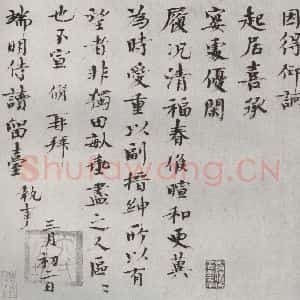 因得仰訊
起居喜承
宴處優閑
履況清福春候暄和更冀
為時愛重以副搢紳所以有
望者非獨田畝垂盡之人區〻
也不宣 脩再拜
端明侍讀留臺 執事
三月初二日
Shufawang.CN